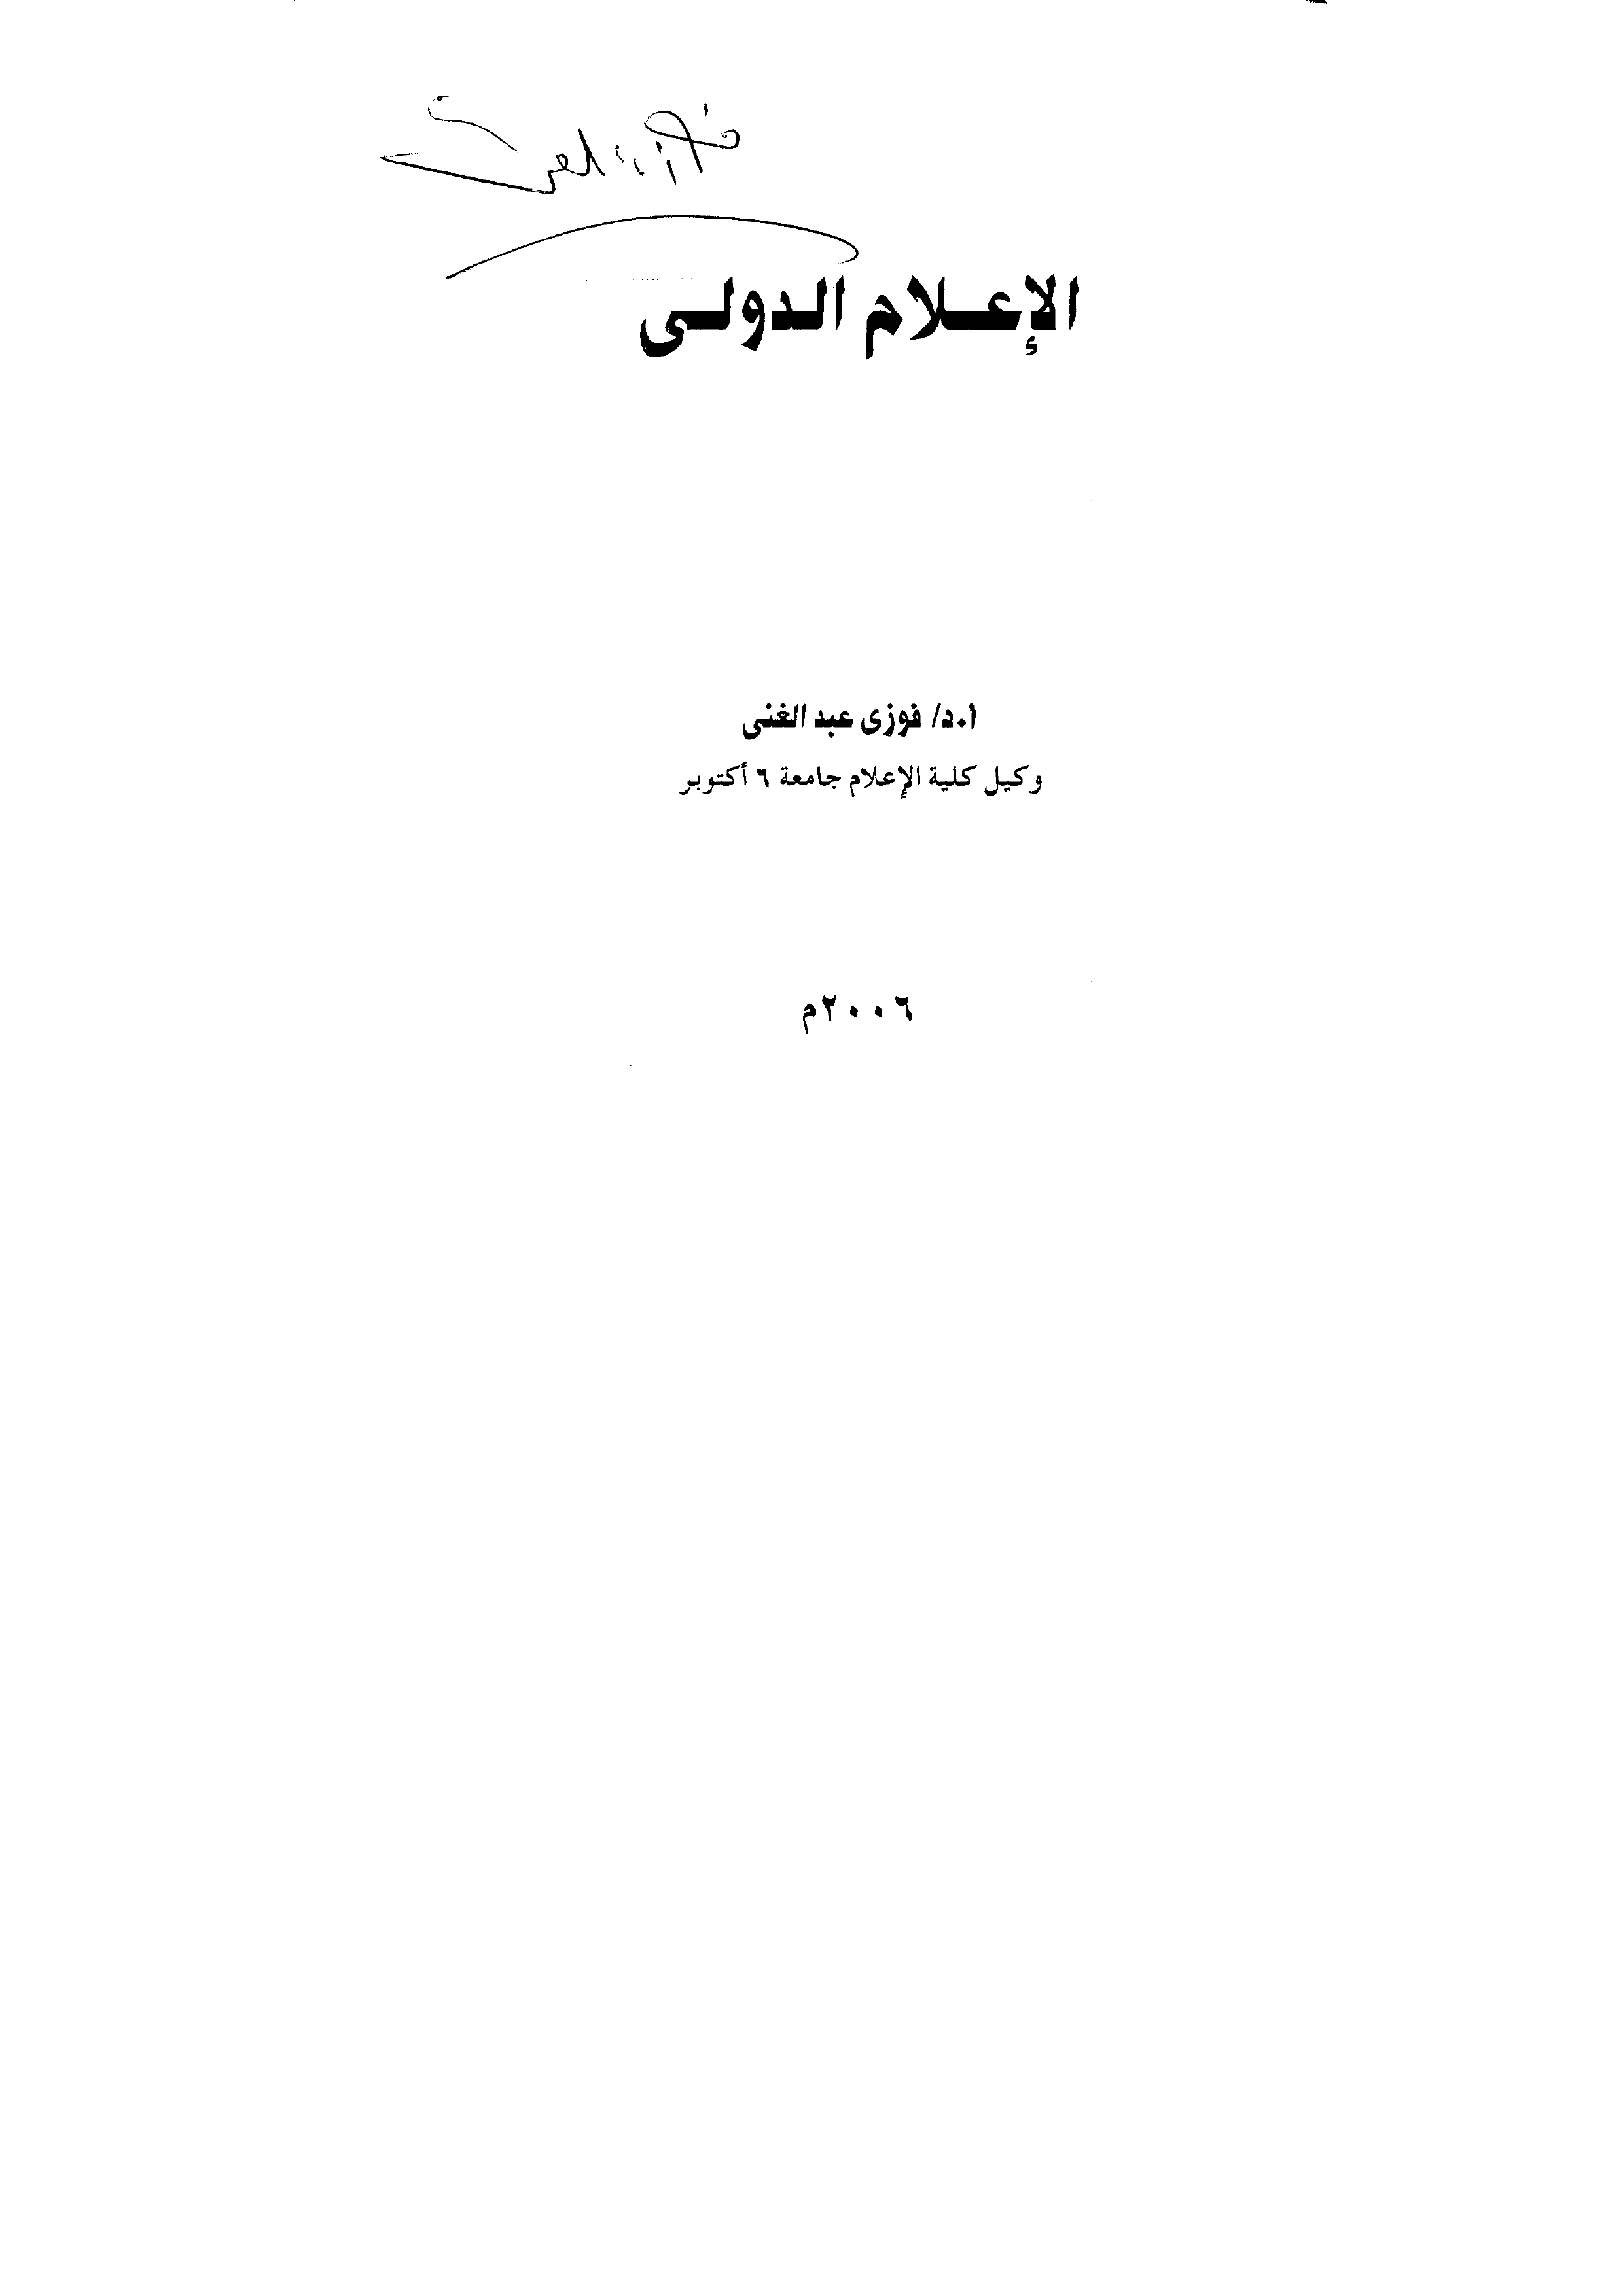 الإعلام الدولى
أ.د/ فوزى عبد الغنى
وكيل كلية الإعلام جامعة ٦ أكتوبر
٢٠٠٦م